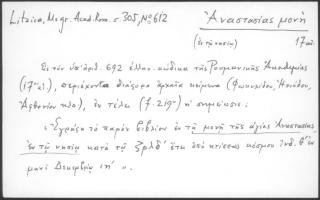 Litzica, Msgr. Acad. Rom. σ. 305, Nº 612 Ἀναστασίας μονή
(ἐν τῇ νήσῳ) 17 αἰ.
Εἰς τὸν ὑπ' ἀριθ. 692 ἑλλην. κώδικα τῆς Ρουμανικῆς Ἀκαδημίας
(17 αἰ.), περιέχοντα διάφορα ἀρχαῖα κείμενα (Φωκυλίδου, Ἡσιόδου,
Ἀφθονίου κλπ.), ἐν τέλει (f. 219ʳ) ἡ σημείωσις:
"Ἐγράφη τὸ παρὸν βιβλίον ἐν τῇ μονῇ τῆς ἁγίας Ἀναστασίας
ἐν τῇ νήσῳ κατὰ τῷ ζρλδ' ἔτει ἀπὸ κτίσεως κόσμου ἰνδ. θ' ἐν
μηνὶ Δεκεμβρίῳ ιη'".